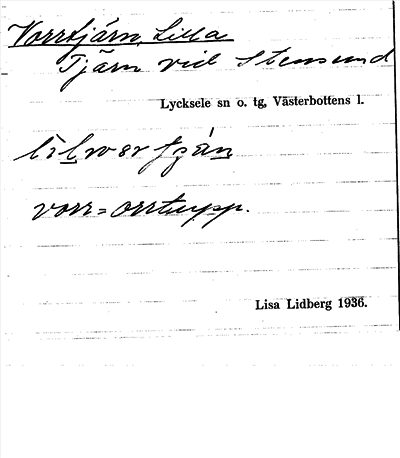 Vorrtjärn, Lilla
Tjärn vid Stensund
Lycksele sn o. tg, Västerbottens l.
vorr = orrtupp.
Lisa Lidberg 1936.